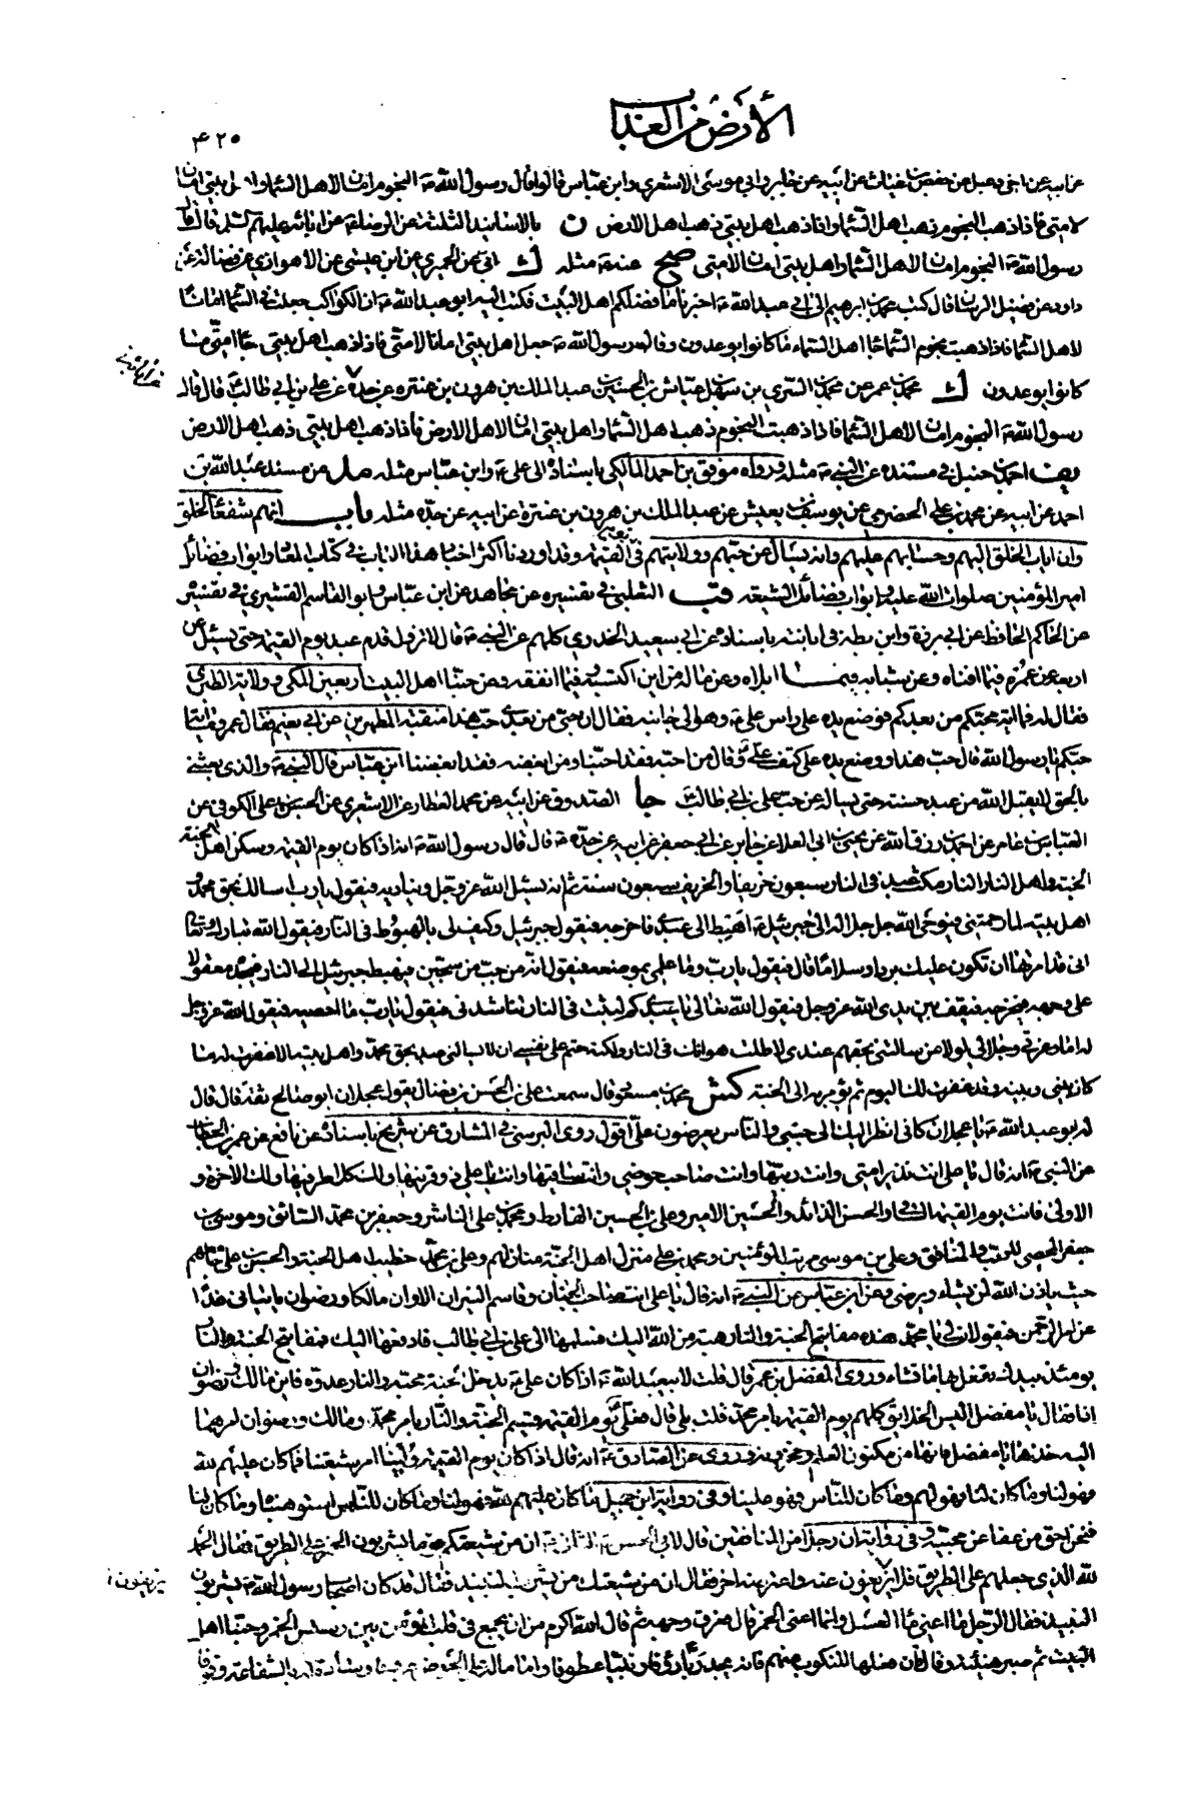 الأرض من العذاب
۴۲۵
عن ابيه عن اخي دعبل عن حفص بن غياث عن ابيه عن جابر وابي موسى الاشعري وابن عباس قالوا قال رسول الله ص النجوم امان لاهل السماء واهل بيتي امان
لامتي فاذا ذهب النجوم ذهب اهل السماء واذا ذهب اهل بيتي ذهب اهل الارض ن بالاسانيد الثلثة عن الرضا ع عن ابائه عليهم السلم قال قال
رسول الله ص النجوم امان لاهل السماء واهل بيتي امان لامتي صح عنه ع مثله ك ابي عن الحميري عن ابن عيسى عن الاهوازي عن فضالة عن
داود عن فضيل الرسان قال كتب محمد بن ابرهيم الى ابي عبد الله ع اخبرنا ما فضلكم اهل البيت فكتب اليه ابو عبد الله ع ان الكواكب جعلت في السماء امانا
لاهل السماء فاذا ذهبت نجوم السماء جاء اهل السماء ما كانوا يوعدون وقال رسول الله ص جعل اهل بيتي امانا لامتي فاذا ذهب اهل بيتي جاء امتي ما
كانوا يوعدون ك محمد بن عمر عن محمد بن السري بن سهل عن عباس بن الحسين عن عبد الملك بن هرون بن عنتره عن جده عن علي بن ابي طالب ع قال قال
رسول الله ص النجوم امان لاهل السماء فاذا ذهبت النجوم ذهب اهل السماء واهل بيتي امان لاهل الارض فاذا ذهب اهل بيتي ذهب اهل الارض
يف احمد بن حنبل في مسنده عن النبي ص مثله ورواه موفق بن احمد المالكي باسناده الى علي ع وابن عباس مثله مد من مسند عبد الله بن
احمد عن ابيه عن محمد بن علي الحضرمي عن يوسف بن يعيش عن عبد الملك بن هرون بن عنترة عن ابيه عن جده مثله باب انهم شفعاء الخلق
وان اياب الخلق اليهم وحسابهم عليهم وانه يسأل عن حبهم وولايتهم في يوم القيمة وقد اوردنا اكثر اخبار هذا الباب في كتاب المعاد وابواب فضائل
امير المؤمنين صلوات الله عليه وابواب فضائل الشيعه قب الثعلبي في تفسيره عن مجاهد عن ابن عباس وابو القاسم القشيري في تفسيره
عن الحاكم الحافظ عن ابي برزة وابن بطة في ابانته باسناده عن ابي سعيد الخدري كلهم عن النبي ص قال لا تزول قدم عبد يوم القيمة حتى يسئل عن
اربعه عن عمره فيما افناه وعن شبابه فيما ابلاه وعن ماله من اين اكتسبه وفيما انفقه وعن حبنا اهل البيت اربعين المكي وولاية الطبري
فقال له فما اية محبتكم من بعدكم فوضع يده على راس علي ع وهو الى جانبه فقال ان حبي من بعدي حب هذا منقبة المطهرين عن ابي نعيم فقال عمر وما اية
حبكم يا رسول الله قال حب هذا ووضع يده على كتف علي ع وقال من احبه فقد احبنا ومن ابغضه فقد ابغضنا ابن عباس قال النبي ص والذي بعثني
بالحق لا يقبل الله من عبد حسنة حتى يسأله عن حب علي بن ابي طالب ع جا الصدوق عن ابيه عن محمد العطار عن الاشعري عن الحسن بن علي الكوفي عن
العباس بن عامر عن احمد بن رزق الله عن يحيى بن ابي العلا عن جابر عن ابي جعفر عن ابيه عن جده ع قال قال رسول الله ص انه اذا كان يوم القيمة وسكن اهل الجنة
الجنة واهل النار النار مكث عبد في النار سبعون خريفا والخريف سبعون سنة ثم انه يسئل الله عز وجل ويناديه فيقول يارب اسالك بحق محمد و
اهل بيته لما رحمتني فيوحي الله جل جلاله الى جبرئيل ع اهبط الى عبدي فاخرجه فيقول جبرئيل وكيف لي بالهبوط في النار فيقول الله تبارك وتعالى
اني قد امرتها ان تكون عليك بردا وسلاما قال فيقول يارب وما علمي بموضعه فيقول انه في جب من سجين فيهبط جبرئيل الى النار فيجده معقولا
على وجهه فيخرجه فيقف بين يدي الله عز وجل فيقول الله تعالى يا عبدي كم لبثت في النار تناشدني فيقول يا رب ما احصيه فيقول الله عز وجل
له اما وعزتي وجلالي لولا من سالتني بحقهم عندي لاطلت هوانك في النار ولكنه حتم على نفسي ان لا يسالني عبد بحق محمد واهل بيته الا غفرت له ما
كان بيني وبينه وقد غفرت لك اليوم ثم يؤمر به الى الجنة كش محمد بن مسعود قال سمعت علي بن الحسن بن فضال يقول عجلان ابو صالح ثقة قال قال
له ابو عبد الله ع يا عجلان كاني انظر اليك الى جنبي والناس يعرضون علي اقول روى البرسي في المشارق عن شريح باسناده عن نافع عن عمر بن الخطاب
عن النبي ص انه قال يا علي انت نذير امتي وانت ربيها وانت صاحب حوضي وانت ساقيها وانت يا علي ذو قرنيها ولك كلا طرفيها ولك الاخرة و
الاولى فانت يوم القيمة الساقي والحسن الذائد والحسين الامير وعلي بن الحسين الفارط ومحمد بن علي الناشر وجعفر بن محمد السائق وموسى بن
جعفر المحصي للمحب والمنافق وعلي بن موسى مرتب المؤمنين ومحمد بن علي منزل اهل الجنة منازلهم وعلي بن محمد خطيب اهل الجنة والحسن بن علي جامعهم
حيث ياذن الله لمن يشاء ويرضى وعن ابن عباس عن النبي ص انه قال يا علي انت صاحب الجنان وقاسم النيران الا وان مالكا ورضوان ياتيان غدا
عن امر الرحمن فيقولان لي يا محمد هذه مفاتيح الجنة والنار هبة من الله اليك فسلمها الى علي بن ابي طالب فادفعها اليك فمفاتيح الجنة والنار
يومئذ بيدك تفعل بها ما تشاء وروى المفضل بن عمر قال قلت لابي عبد الله ع اذا كان علي ع يدخل الجنة محبه والنار عدوه فاين مالك ورضوان
اذا فقال يا مفضل اليس الخلائق كلهم يوم القيمة بامر محمد قلت بلى قال فعلي يوم القيمة قسيم الجنة والنار بامر محمد ومالك ورضوان امرهما
اليه خذها يا مفضل فانها من مكنون العلم ومخزونه وروي عن الصادق ع انه قال اذا كان يوم القيمة ولينا امر شيعتنا فما كان عليهم لله
فهو لنا وما كان لنا فهو لهم وما كان للناس فهو علينا وفي رواية ابن جميل ما كان عليهم لله فهو لنا وما كان للناس استوهبناه وما كان لنا
فنحن احق من عفا عن محبيه وفي رواية ان رجلا من المنافقين قال لابي الحسن الثاني ع ان من شيعتكم قوما يشربون الخمر على الطريق فقال الحمد
لله الذي جعلهم على الطريق فلا يزيغون عنه واعترضه اخر فقال ان من شيعتك من يشرب النبيذ فقال قد كان اصحاب رسول الله ص يشربون
النبيذ فقال الرجل ما اعني ماء العسل وانما اعني الخمر قال فعرق وجهه ثم قال الله اكرم من ان يجمع في قلب المؤمن بين رسيس الخمر وحبنا اهل
البيت ثم صبر هنيئة وقال فان فعلها المنكوب منهم فانه يجد ربا رؤفا ونبيا عطوفا واماما له على الحوض عروفا وسادة له بالشفاعة وقوفا
يزيغون